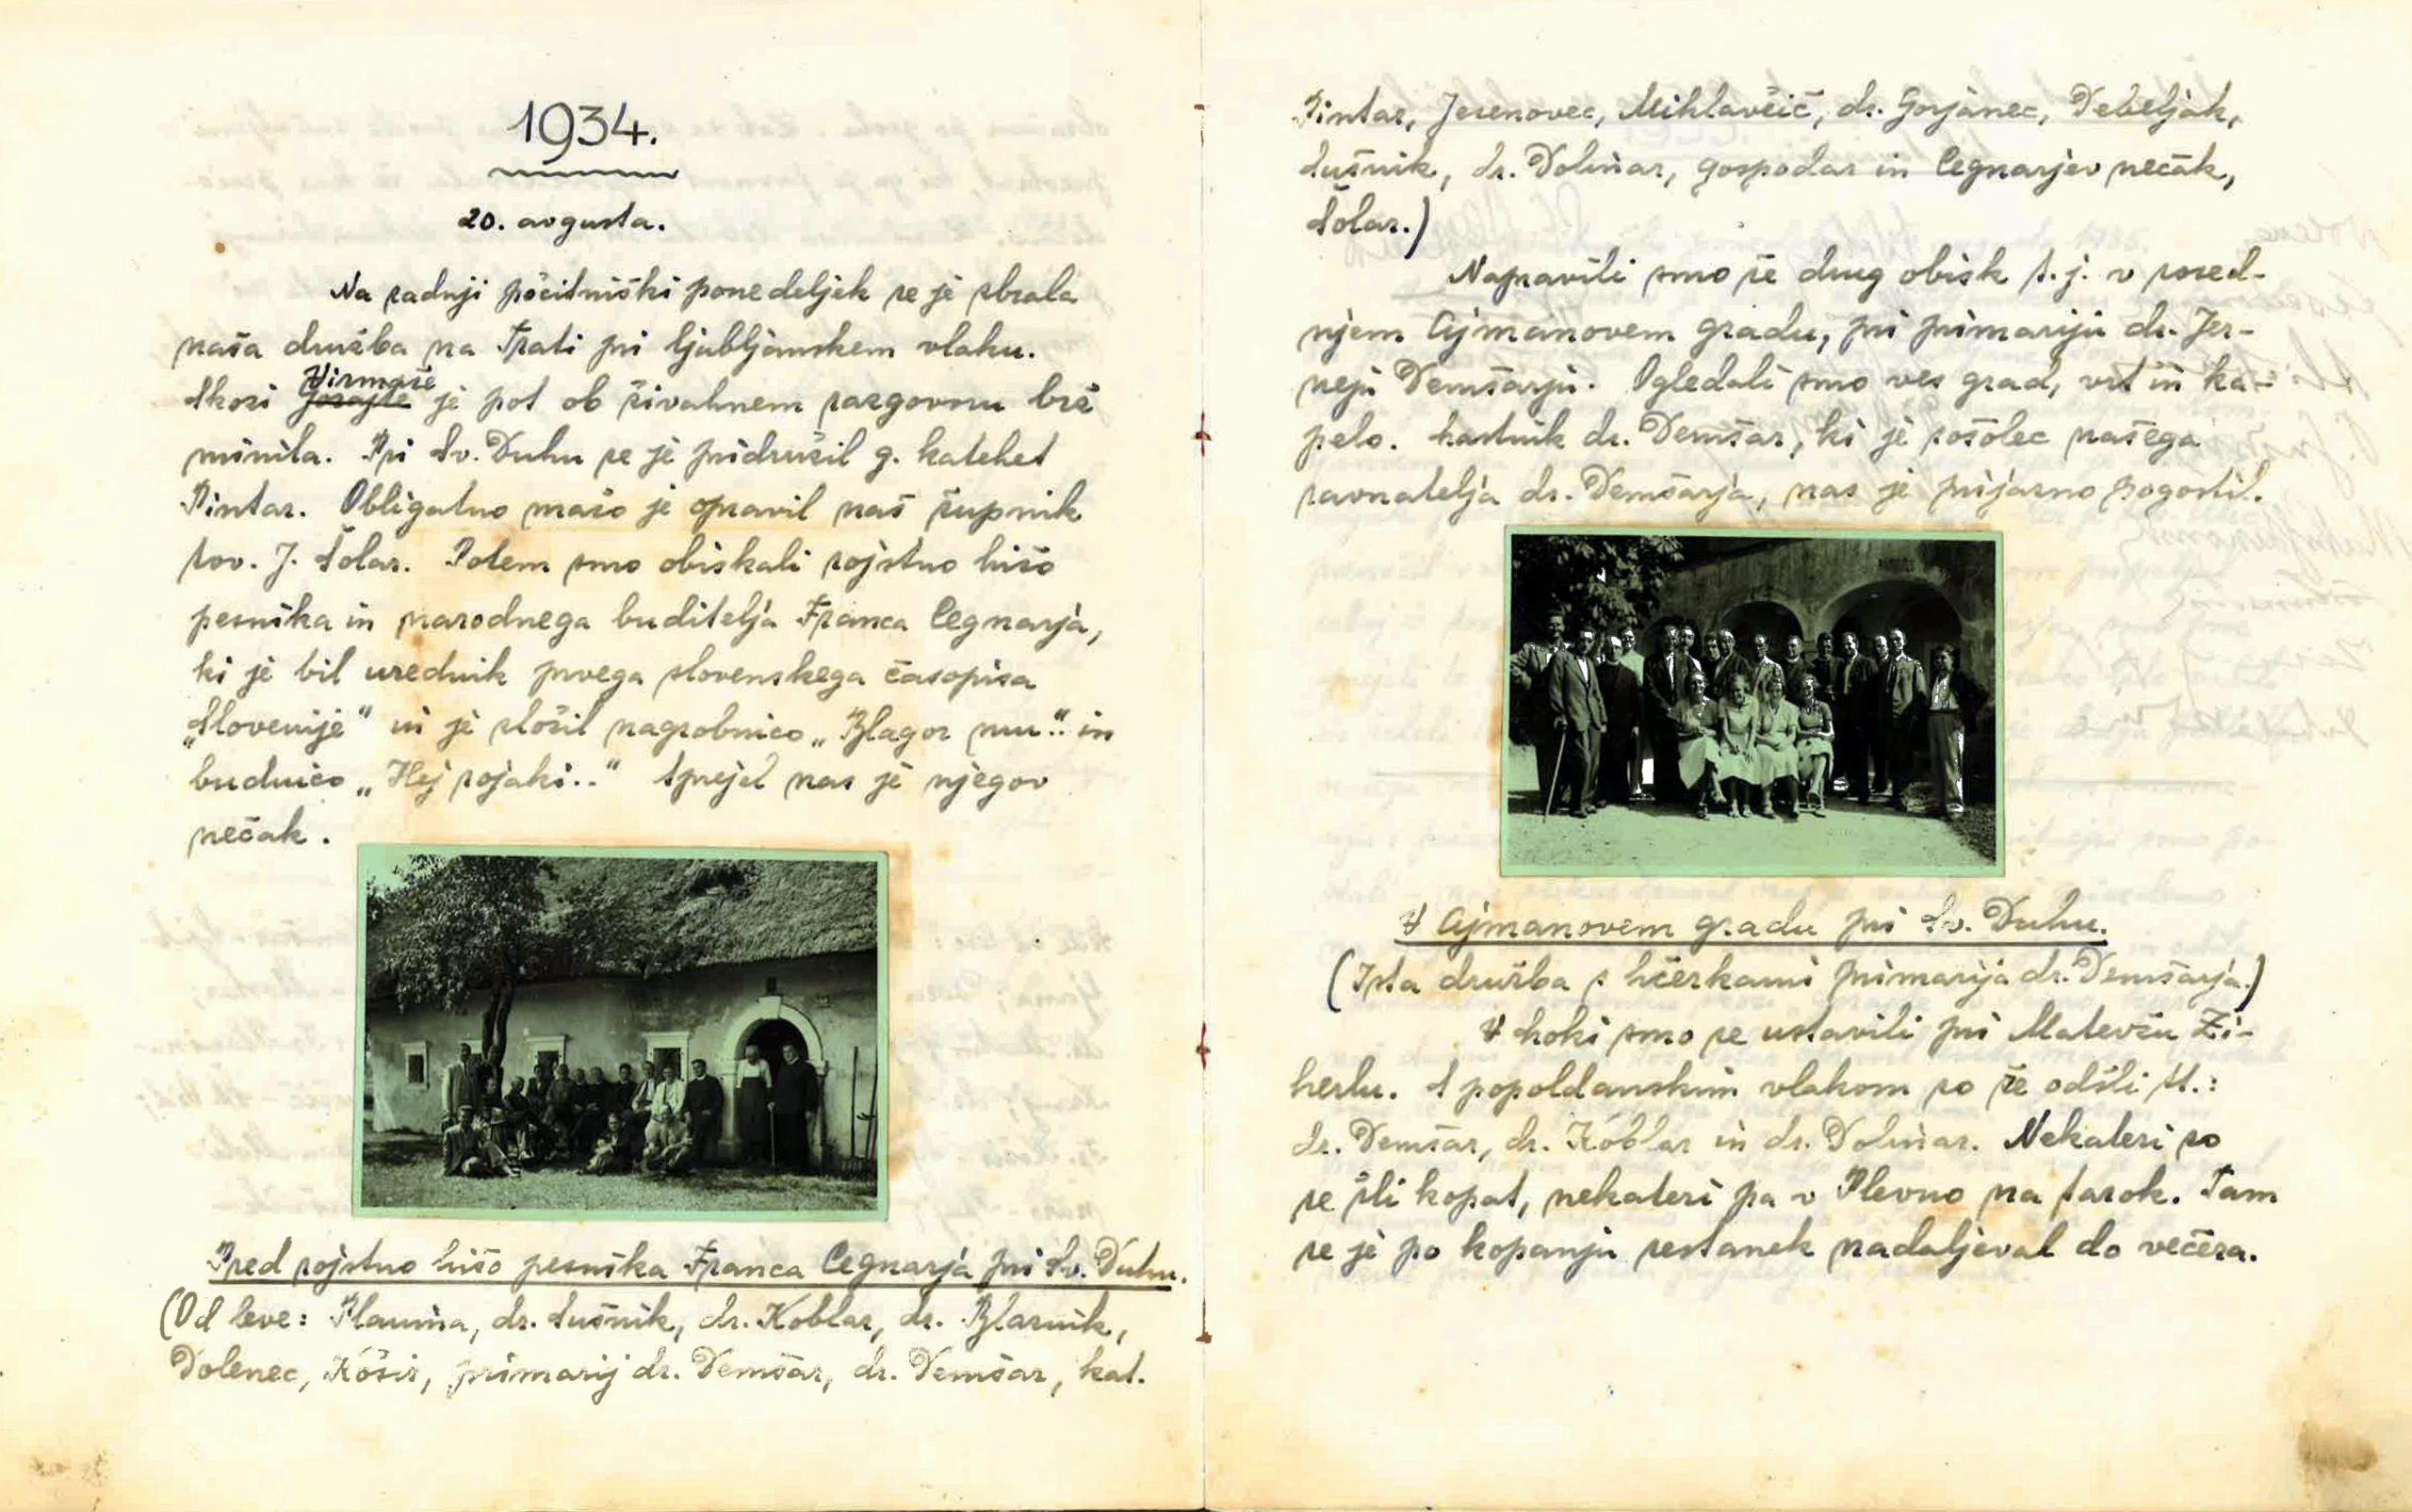 1934.
20. avgusta.
Na zadnji počitniški ponedeljek se je zbrala
naša družba na Trati pri ljubljanskem vlaku.
Virmaše
Skozi Gorajte je pot ob živahnem razgovoru brž
minila. Pri Sv. Duhu se je pridružil g. katehet
Pintar. Obligatno mašo je opravil naš župnik
tov. J. Šolar. Potem smo obiskali rojstno hišo
pesnika in narodnega buditelja Franca Cegnarja,
ki je bil urednik prvega slovenskega časopisa
„Slovenije" in je zložil nagrobnico „Blagor mu.." in
budnico „Hej rojaki.." Sprejel nas je njegov
nečak.
Pred rojstno hišo pesnika Franca Cegnarja pri Sv. Duhu.
(Od leve: Planina, dr. Sušnik, dr. Koblar, dr. Blaznik,
Dolenec, Košir, primarij dr. Demšar, dr. Demšar, kat.
Pintar, Jesenovec, Miklavčič, dr. Gorjanec, Debeljak,
Sušnik, dr. Dolinar, gospodar in Cegnarjev nečak,
Šolar.)
Napravili smo še drug obisk t.j. v sosed-
njem Ajmanovem gradu, pri primariju dr. Jer-
neju Demšarju. Ogledali smo ves grad, vrt in ka-
pelo. Lastnik dr. Demšar, ki je sošolec našega
ravnatelja dr. Demšarja, nas je prijazno pogostil.
V Ajmanovem gradu pri Sv. Duhu.
(Ista družba s hčerkami primarija dr. Demšarja.)
V Loki smo se ustavili pri Matevžu Zi-
herlu. S popoldanskim vlakom so že odšli tt.:
dr. Demšar, dr. Koblar in dr. Dolinar. Nekateri so
se šli kopat, nekateri pa v Plevno na tarok. Tam
se je po kopanju sestanek nadaljeval do večera.